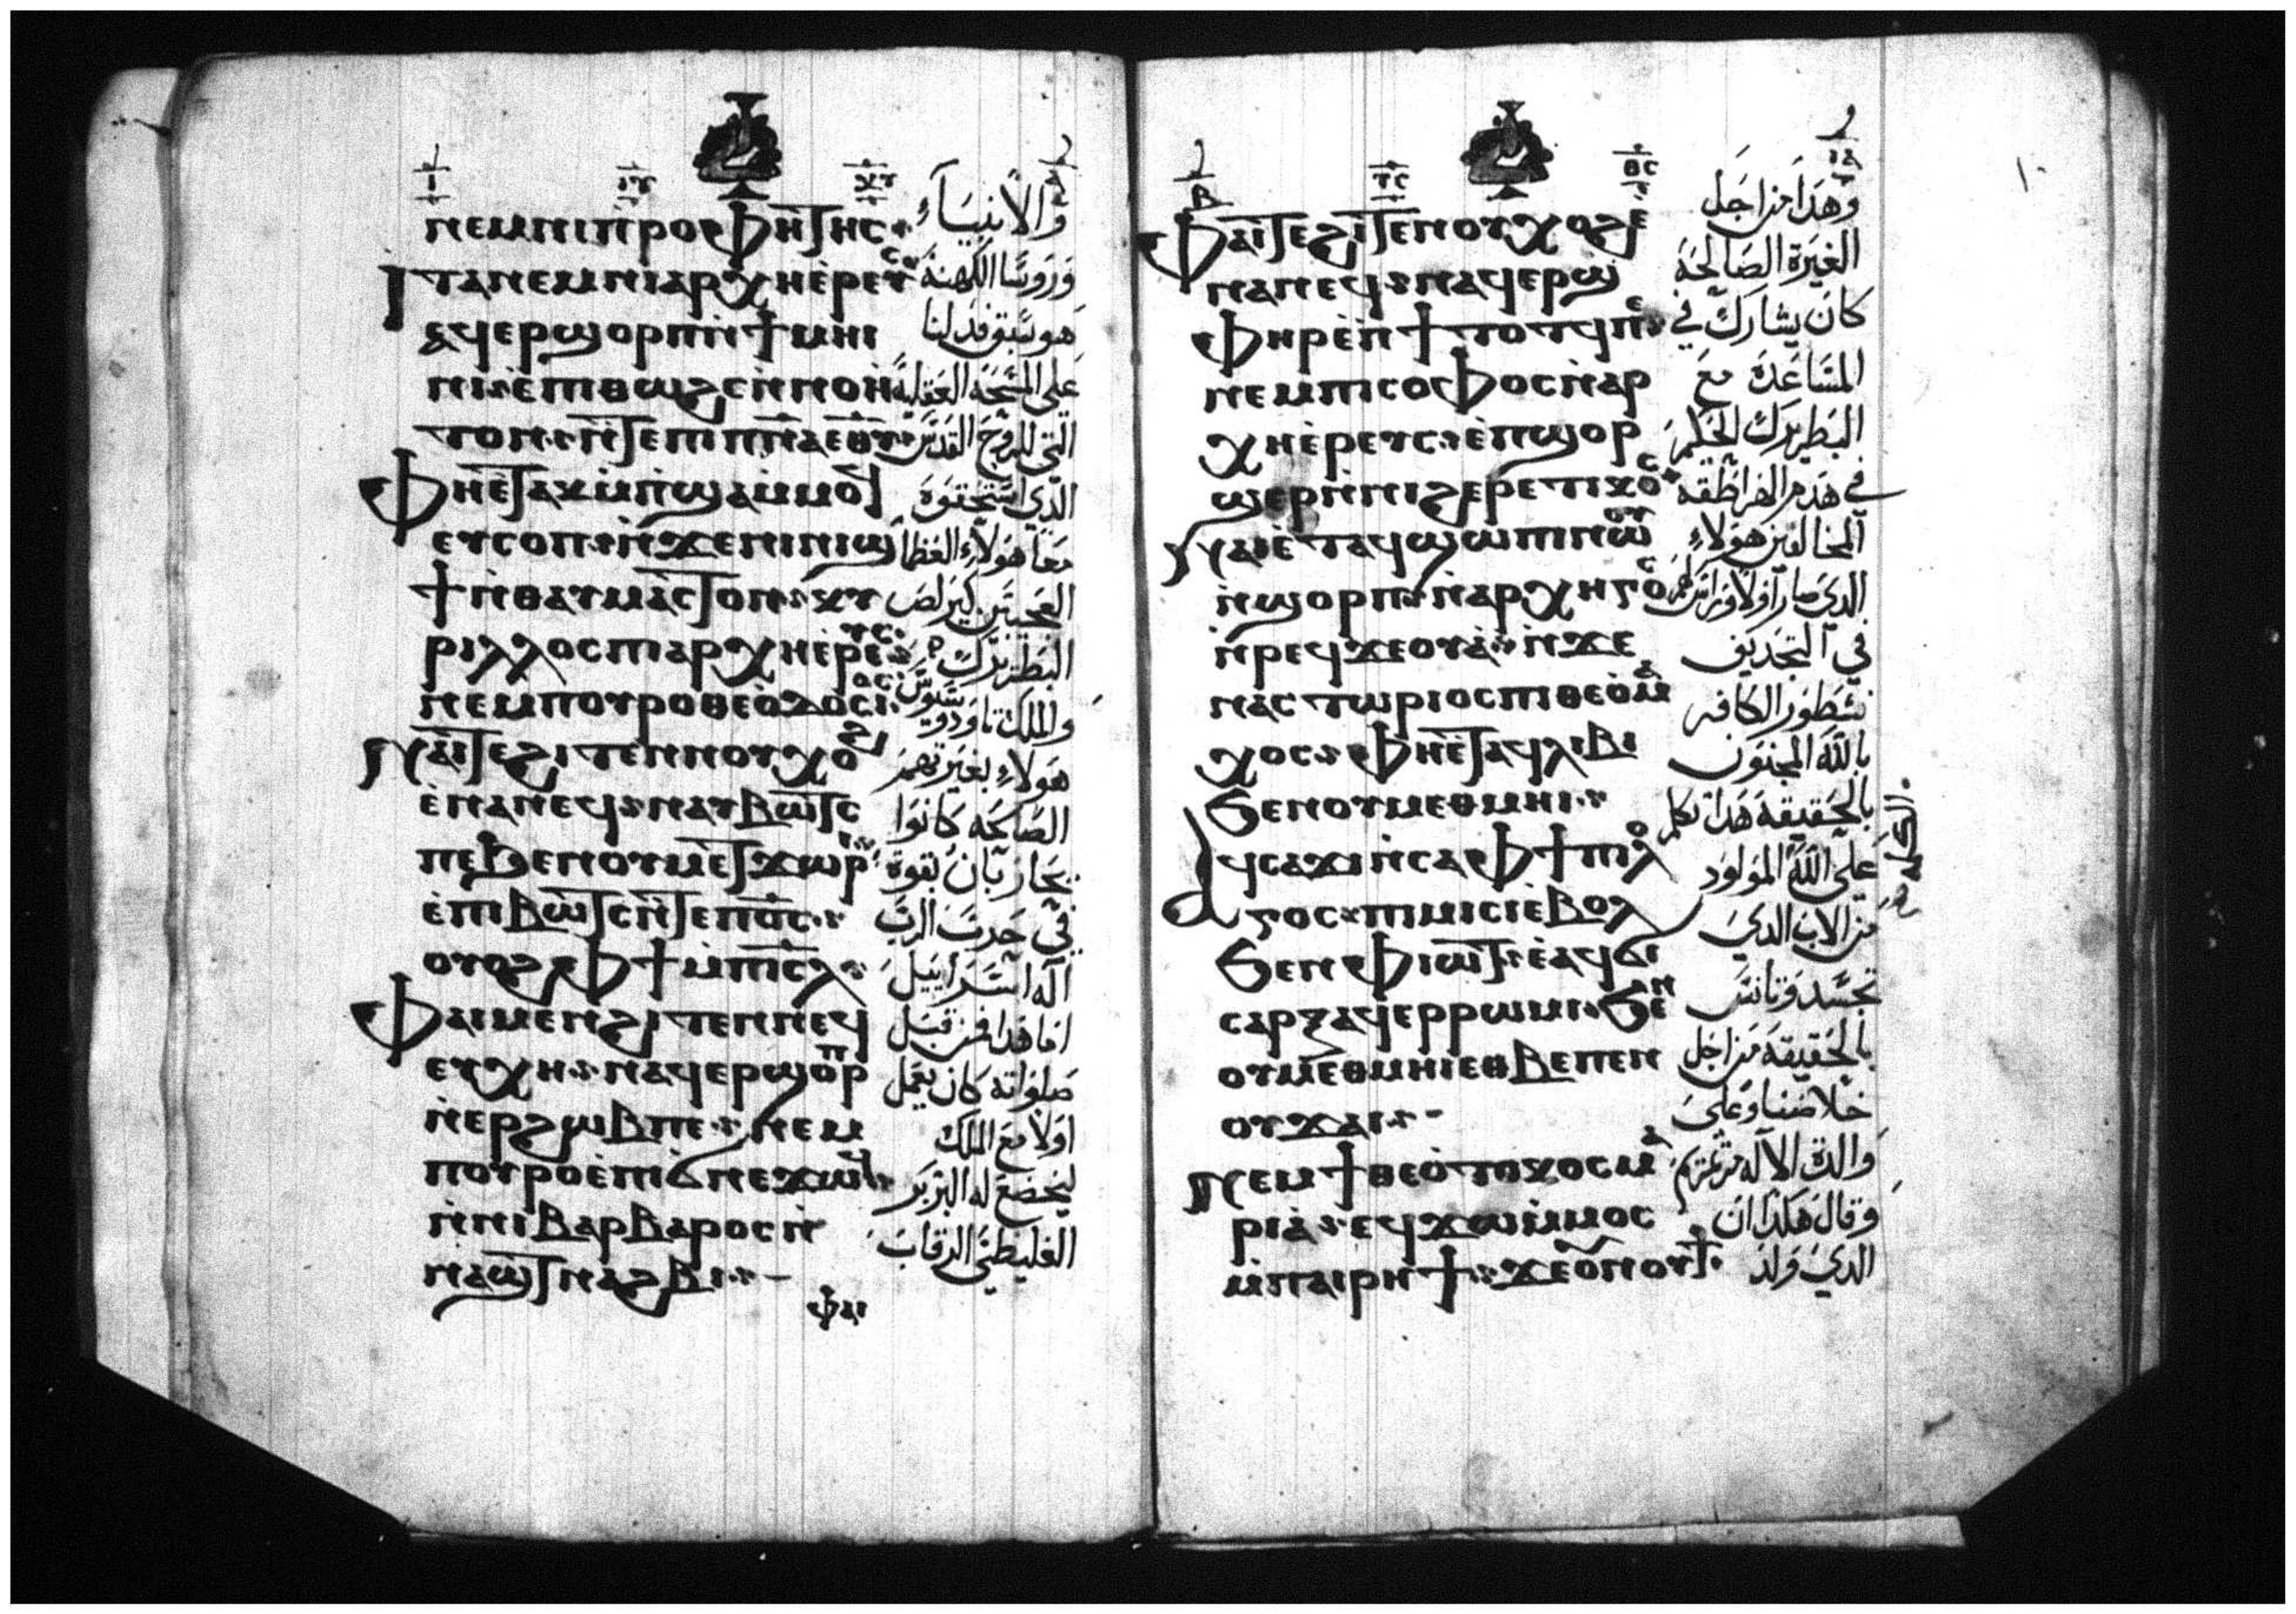 ⲛⲉⲙⲛⲓⲡ̀ⲣⲟⲫⲏⲧⲏⲥ
ⲧⲁⲛⲉⲙⲛⲓⲁⲣⲭⲏⲉ̀ⲣⲉⲩⲥ
ⲁϥⲉⲣϣⲟⲣⲡⲛ̀ϯⲙⲏⲓ
ⲧⲟⲛ ⲛ̀ⲧⲉⲡⲓⲡ̅ⲛ̅ⲁ̅ⲉ̅ⲑ̅ⲩ̅
ⲉⲩⲥⲟⲡ ⲛ̀ϫⲉⲛⲓⲛⲓϣ
ϯⲛ̀ⲑⲁⲩⲙⲁⲥⲧⲟⲛ ⲕⲩ
ⲣⲓⲗⲗⲟⲥⲡⲓⲁⲣⲭⲏⲉ̀ⲣⲉⲩⲥ
ⲛⲉⲙⲡⲟⲩⲣⲟⲑⲉⲟ̀ⲇⲟⲥⲓⲟⲥ
ⲛⲁⲓ̀ⲧⲉϩⲓⲧⲉⲛⲛⲟⲩⲭⲟϩ
ⲉ̀ⲛⲁⲛⲉϥ ⲛⲁⲩⲃⲱⲧⲥ
ⲡⲉϧⲉⲛⲟⲩⲙⲉⲧϫⲱⲣⲓ
ⲉ̀ⲡⲓⲃⲱⲧⲥⲛ̀ⲧⲉⲡⲟ̅ⲥ̅
ⲟⲩⲟϩⲫϯⲙ̀ⲡⲓⲥ̅ⲗ̅
ⲫⲁⲓⲙⲉⲛϩⲓⲧⲉⲛⲛⲉϥ
ⲉⲩⲭⲏ ⲛⲁϥⲉⲣϣⲟⲣⲡ
ⲛ̀ⲉⲣϩⲱⲃⲡⲉ ⲛⲉⲙ
ⲡⲟⲩⲣⲟⲉ̀ⲡϭⲛⲉϫⲱⲟⲩ
ⲛ̀ⲛⲓⲃⲁⲣⲃⲁⲣⲟⲥⲛ̀
ⲛⲁϣⲧⲛⲁϩⲃⲓ
ⲫⲁⲓ
والانبياء
وروسا الكهنة
هو سبق فدلنا
معا هولاء العظما
البطريرك
هولاء بغيرتهم
الصالحه كانوا
يحاربان بقوة
في حرب الرب
اله اسراييل
اما هذا فمن قبل
صلواته كان يعمل
اولا مع الملك
ليخضع له البربر
الغليظي الرقاب
ⲫⲁⲓⲧⲉϩⲓⲧⲉⲛⲟⲩⲭⲟϩⲉ̀
ⲛⲁⲛⲉϥ ⲛⲁϥⲉⲣϣ
ⲫⲏⲣⲉⲛ̀ϯⲧⲟⲧϥⲡⲉ
ⲛⲉⲙⲡⲓⲥⲟⲫⲟⲥⲛ̀ⲁⲣ
ⲭⲏⲉ̀ⲣⲉⲩⲥ ⲉ̀ⲡϣⲟⲣ
ϣⲉⲣⲛ̀ⲛⲓϩⲉⲣⲉⲧⲓⲕⲟⲥ
ⲛⲁⲓⲉ̀ⲧⲁϥϣⲱⲡⲓⲛⲱⲟⲩ
ⲛ̀ϣⲟⲣⲡ ⲛ̀ⲁⲣⲭⲏⲅⲟⲥ
ⲛ̀ⲣⲉϥϫⲉⲟⲩⲁ̀ ⲛ̀ϫⲉ
ⲛⲁⲥⲧⲱⲣⲓⲟⲥⲡⲓⲑⲉⲟ̀ⲙⲁ
ⲭⲟⲥ ⲫⲏⲉ̀ⲧⲁϥⲗⲓⲃⲓ
ϧⲉⲛⲟⲩⲙⲉⲑⲙⲏⲓ
ⲁϥⲥⲁϫⲓⲛ̀ⲥⲁⲫϯⲡⲓⲗⲟ
ⲅⲟⲥ ⲡⲓⲙⲓⲥⲓⲉ̀ⲃⲟⲗ
ϧⲉⲛⲫⲓⲱⲧ ⲉ̀ⲁϥϭⲓ
ⲥⲁⲣⲝⲁϥⲉⲣⲣⲱⲙⲓ ϧⲉⲛ
ⲟⲩⲙⲉⲑⲙⲏⲓⲉⲑⲃⲉⲡⲉⲛ
ⲟⲩϫⲁⲓ
ⲛⲉⲙϯⲑⲉⲟ̀ⲧⲟⲕⲟⲥⲙⲁ
ⲣⲓⲁ̀ ⲉϥϫⲱⲙ̀ⲙⲟⲥ
ⲙ̀ⲡⲁⲓⲣⲏϯ ϫⲉⲟⲩⲛⲟⲩϯ
وهذا من اجل
الغيرة الصالحه
كان يشارك في
المساعدة مع
البطريرك الحكيم
في هدم الهراطقه
المخالفين هولاء
في التجديف
نسطور الكافر
بالله المجنون
بالحقيقة هذا تكلم
على الله المولود
الكلمه
من الاب الدي
تجسد وتانس
بالحقيقة من اجل
خلاصنا وعلى
والدة الاله مرتمريم
وقال هكذا ان
الدي ولد